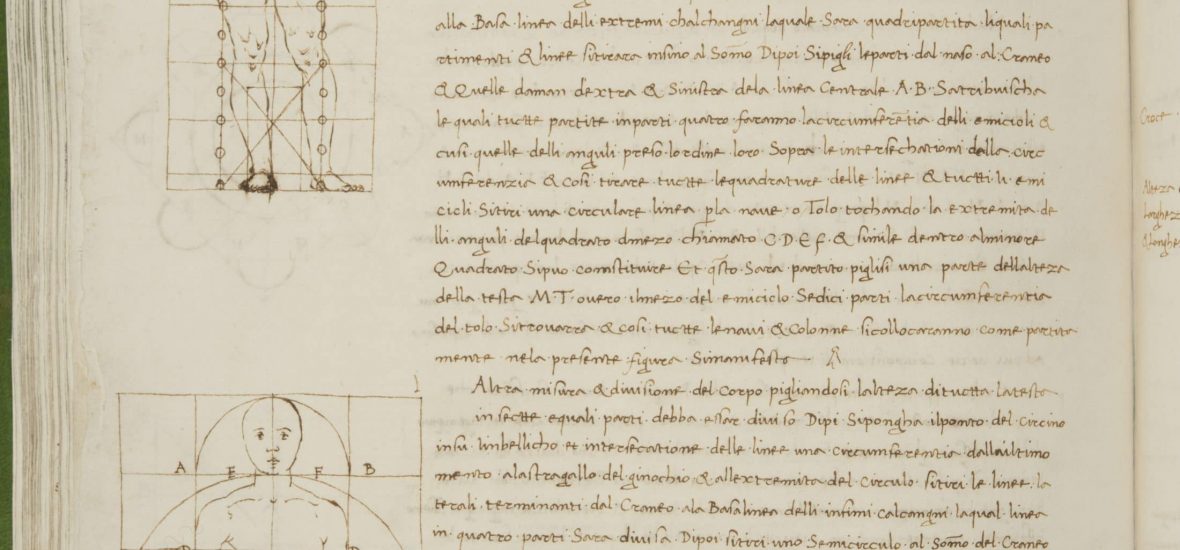 alla Basa linea delli extremi chalchangni laquale Sara quadripartita liquali pa
rtimenti & linee sitirara insino al Som̄o Dipoi Sipigli leparti dal naso al Craneo
& Quelle daman dextra & Sinistra dela linea Centrale A·B·Satribuischa
le quali tuctte partite inparti quatro faranno lacircumferētia delli emicioli &
cusi quelle delli anguli preso lordine loro Sopra le intersechationi dalla circ
umferenzia & cosi tirare tuctte lequadrature delle linee & tuctti li emi
cicli Sitiri una circulare linea p̱la nave o Tolo tochando la extremita de
lli anguli delquadrato dmezo chiamato C·D·E·F· & simile dentro alminore
Quadrato Sipuo comstituire Et q̄sto Sara partito piglisi una parte dellalteza
della testa M·T· overo ilmezo del emiciolo Sedici parti lacircumferentia
del tolo Sitrovarra & cosi tuctte lenavi & Colonne sicollocaranno come partita
mente nela presente figura Simanifesto
Altra misura & divisione del Corpo pigliandosi lalteza ditucta latesta
in sectte equali parti debba essar diviso Dipi Sipongha ilponto del Circino
insu linbellicho et intersecatione delle linee una circumferentia dallaultimo
mento alastragallo del ginochio & allextremita del Circulo sitiri le linee la
terali terminanti dal Craneo ala Basalinea delli infimi calcangni laqual linea
in quatro parti Sara divisa Dipoi sitiri uno Semicirculo al Som̄o del Craneo
A E F B
Croce
Alteza
Larghez
& longhe